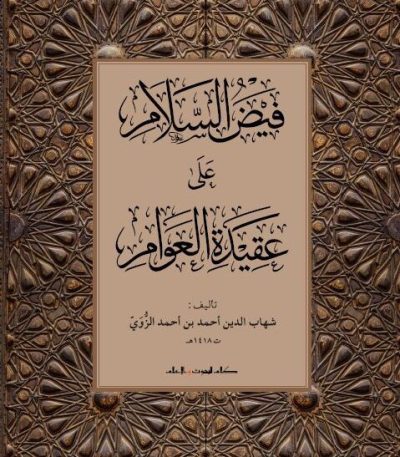 فيض السلام
على
عقيدة العوام
تأليف :
شهاب الدين أحمد بن أحمد الزُّوَيّ
ت ١٤١٨هـ
كلام للبحوث والإعلام